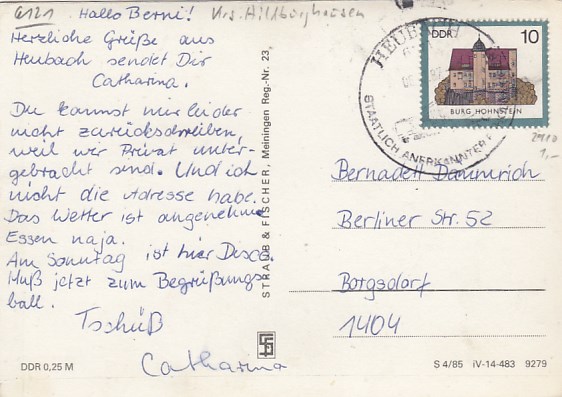 6121 Hallo Berni! Krs. Hildburghausen
Herzliche Grüße aus
Heubach sendet Dir
Catharina.
Du kannst mir leider
nicht zurückschreiben,
weil wir Privat unter-
gebracht sind. Und ich
nicht die Adresse habe.
Das Wetter ist angenehm
Essen naja.
Am Sonntag ist hier Disco.
Muß jetzt zum Begrüßungs-
ball.
Tschüß
Catharina
DDR 0,25 M
STRAUB & FISCHER, Meiningen Reg.-Nr. 23
HEUBACH
STAATLICH ANERKANNTER
DDR 10
BURG HOHNSTEIN
2910
1,-
Bernadett Dammrich
Berliner Str. 52
Borgsdorf
1404
S 4/85 iV-14-483 9279